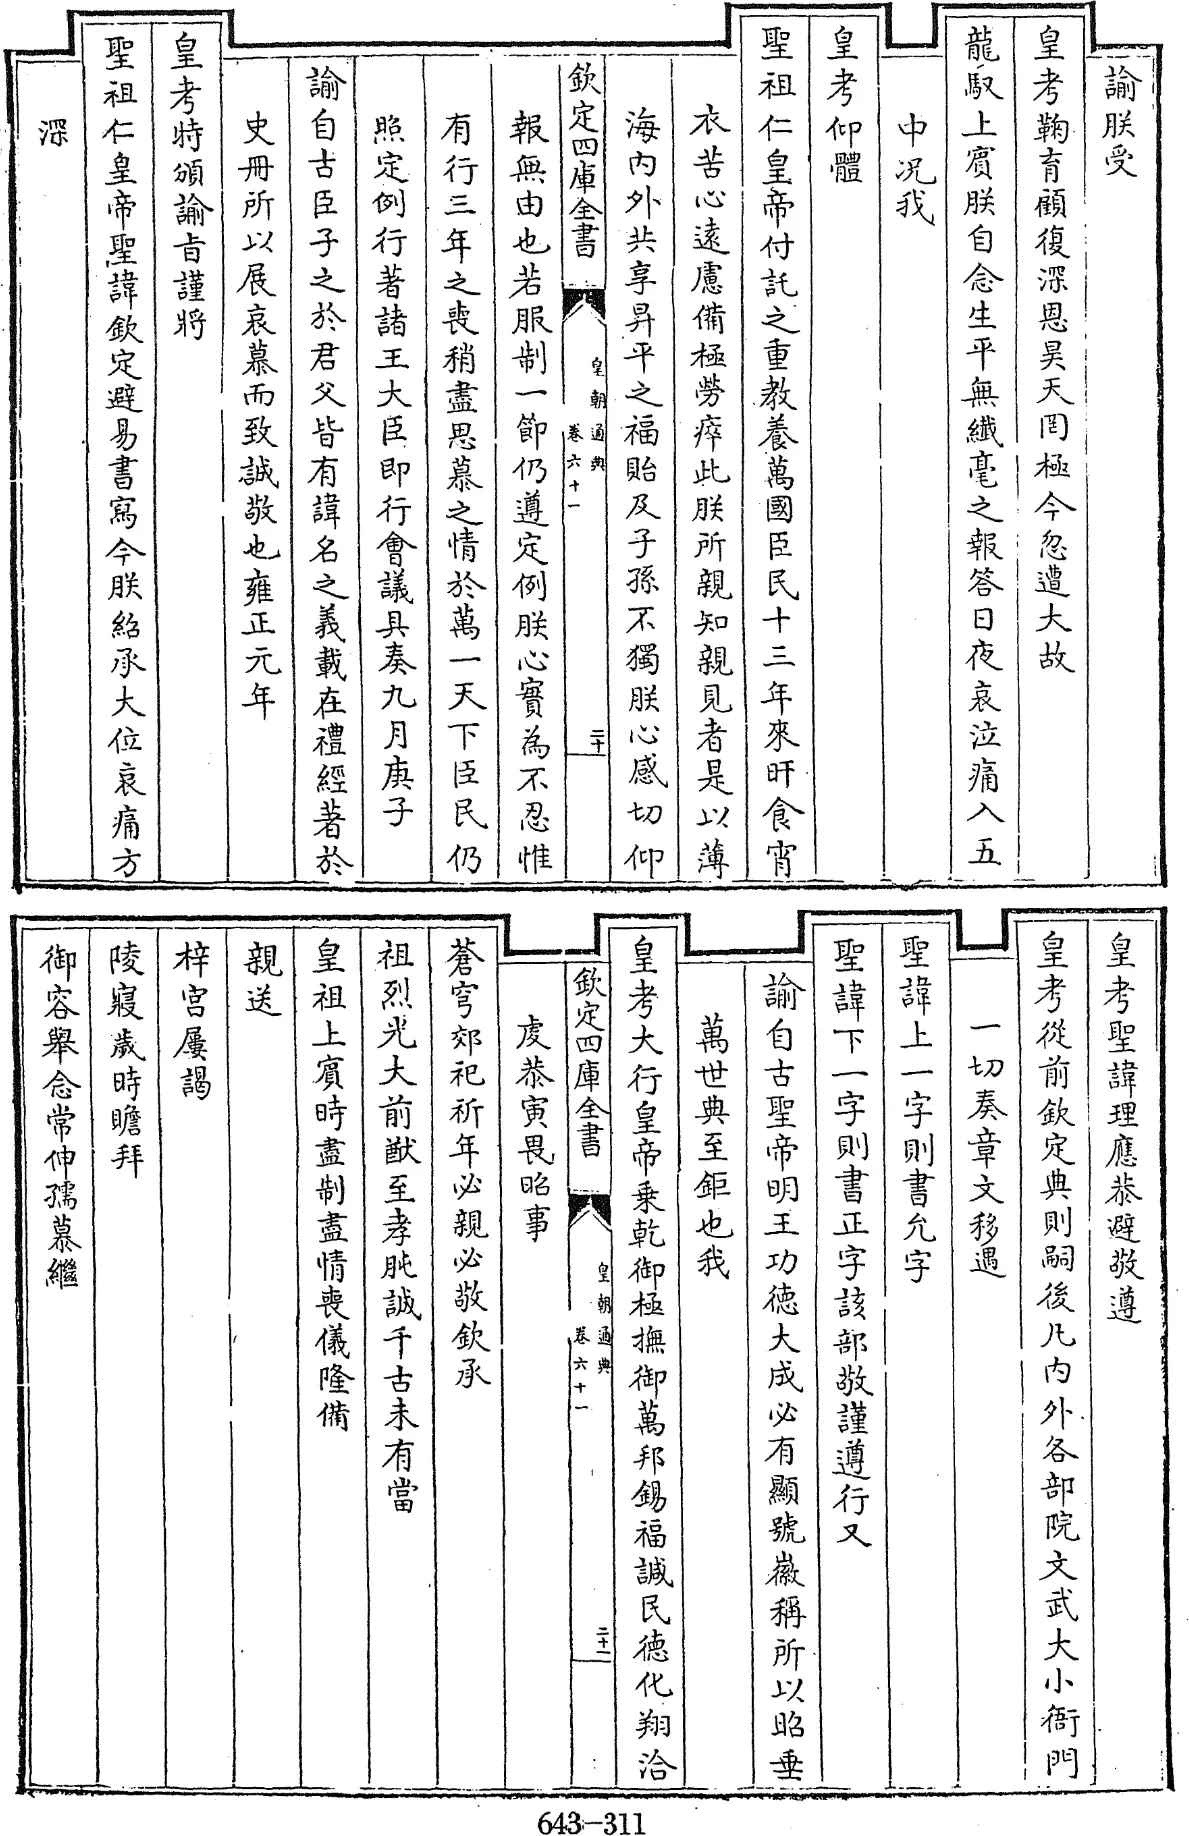 諭朕受
皇考鞠育顧復深恩昊天罔極今忽遭大故
龍馭上賓朕自念生平無纎毫之報答日夜哀泣痛入五
中况我
皇考仰體
聖祖仁皇帝付託之重教養萬國臣民十三年來旰食宵
衣苦心遠慮備極勞瘁此朕所親知親見者是以薄
海内外共享昇平之福貽及子孫不獨朕心感切仰
欽定四庫全書
皇朝通典
卷六十一
二十
報無由也若服制一節仍遵定例朕心實為不忍惟
有行三年之喪稍盡思慕之情於萬一天下臣民仍
照定例行著諸王大臣即行會議具奏九月庚子
諭自古臣子之於君父皆有諱名之義載在禮經著於
史冊所以展哀慕而致誠敬也雍正元年
皇考特頒諭旨謹將
聖祖仁皇帝聖諱欽定避易書寫今朕紹承大位哀痛方
深
皇考聖諱理應恭避敬遵
皇考從前欽定典則嗣後凡内外各部院文武大小衙門
一切奏章文移遇
聖諱上一字則書允字
聖諱下一字則書正字該部敬謹遵行又
諭自古聖帝明王功德大成必有顯號徽稱所以昭垂
萬世典至鉅也我
皇考大行皇帝乗乾御極撫御萬邦錫福諴民德化翔洽
欽定四庫全書
皇朝通典
卷六十一
二十一
虔恭寅畏昭事
蒼穹郊祀祈年必親必敬欽承
祖烈光大前猷至孝肫誠千古未有當
皇祖上賓時盡制盡情喪儀隆備
親送
梓宫屢謁
陵寢歲時瞻拜
御容舉念常伸孺慕繼
643-311